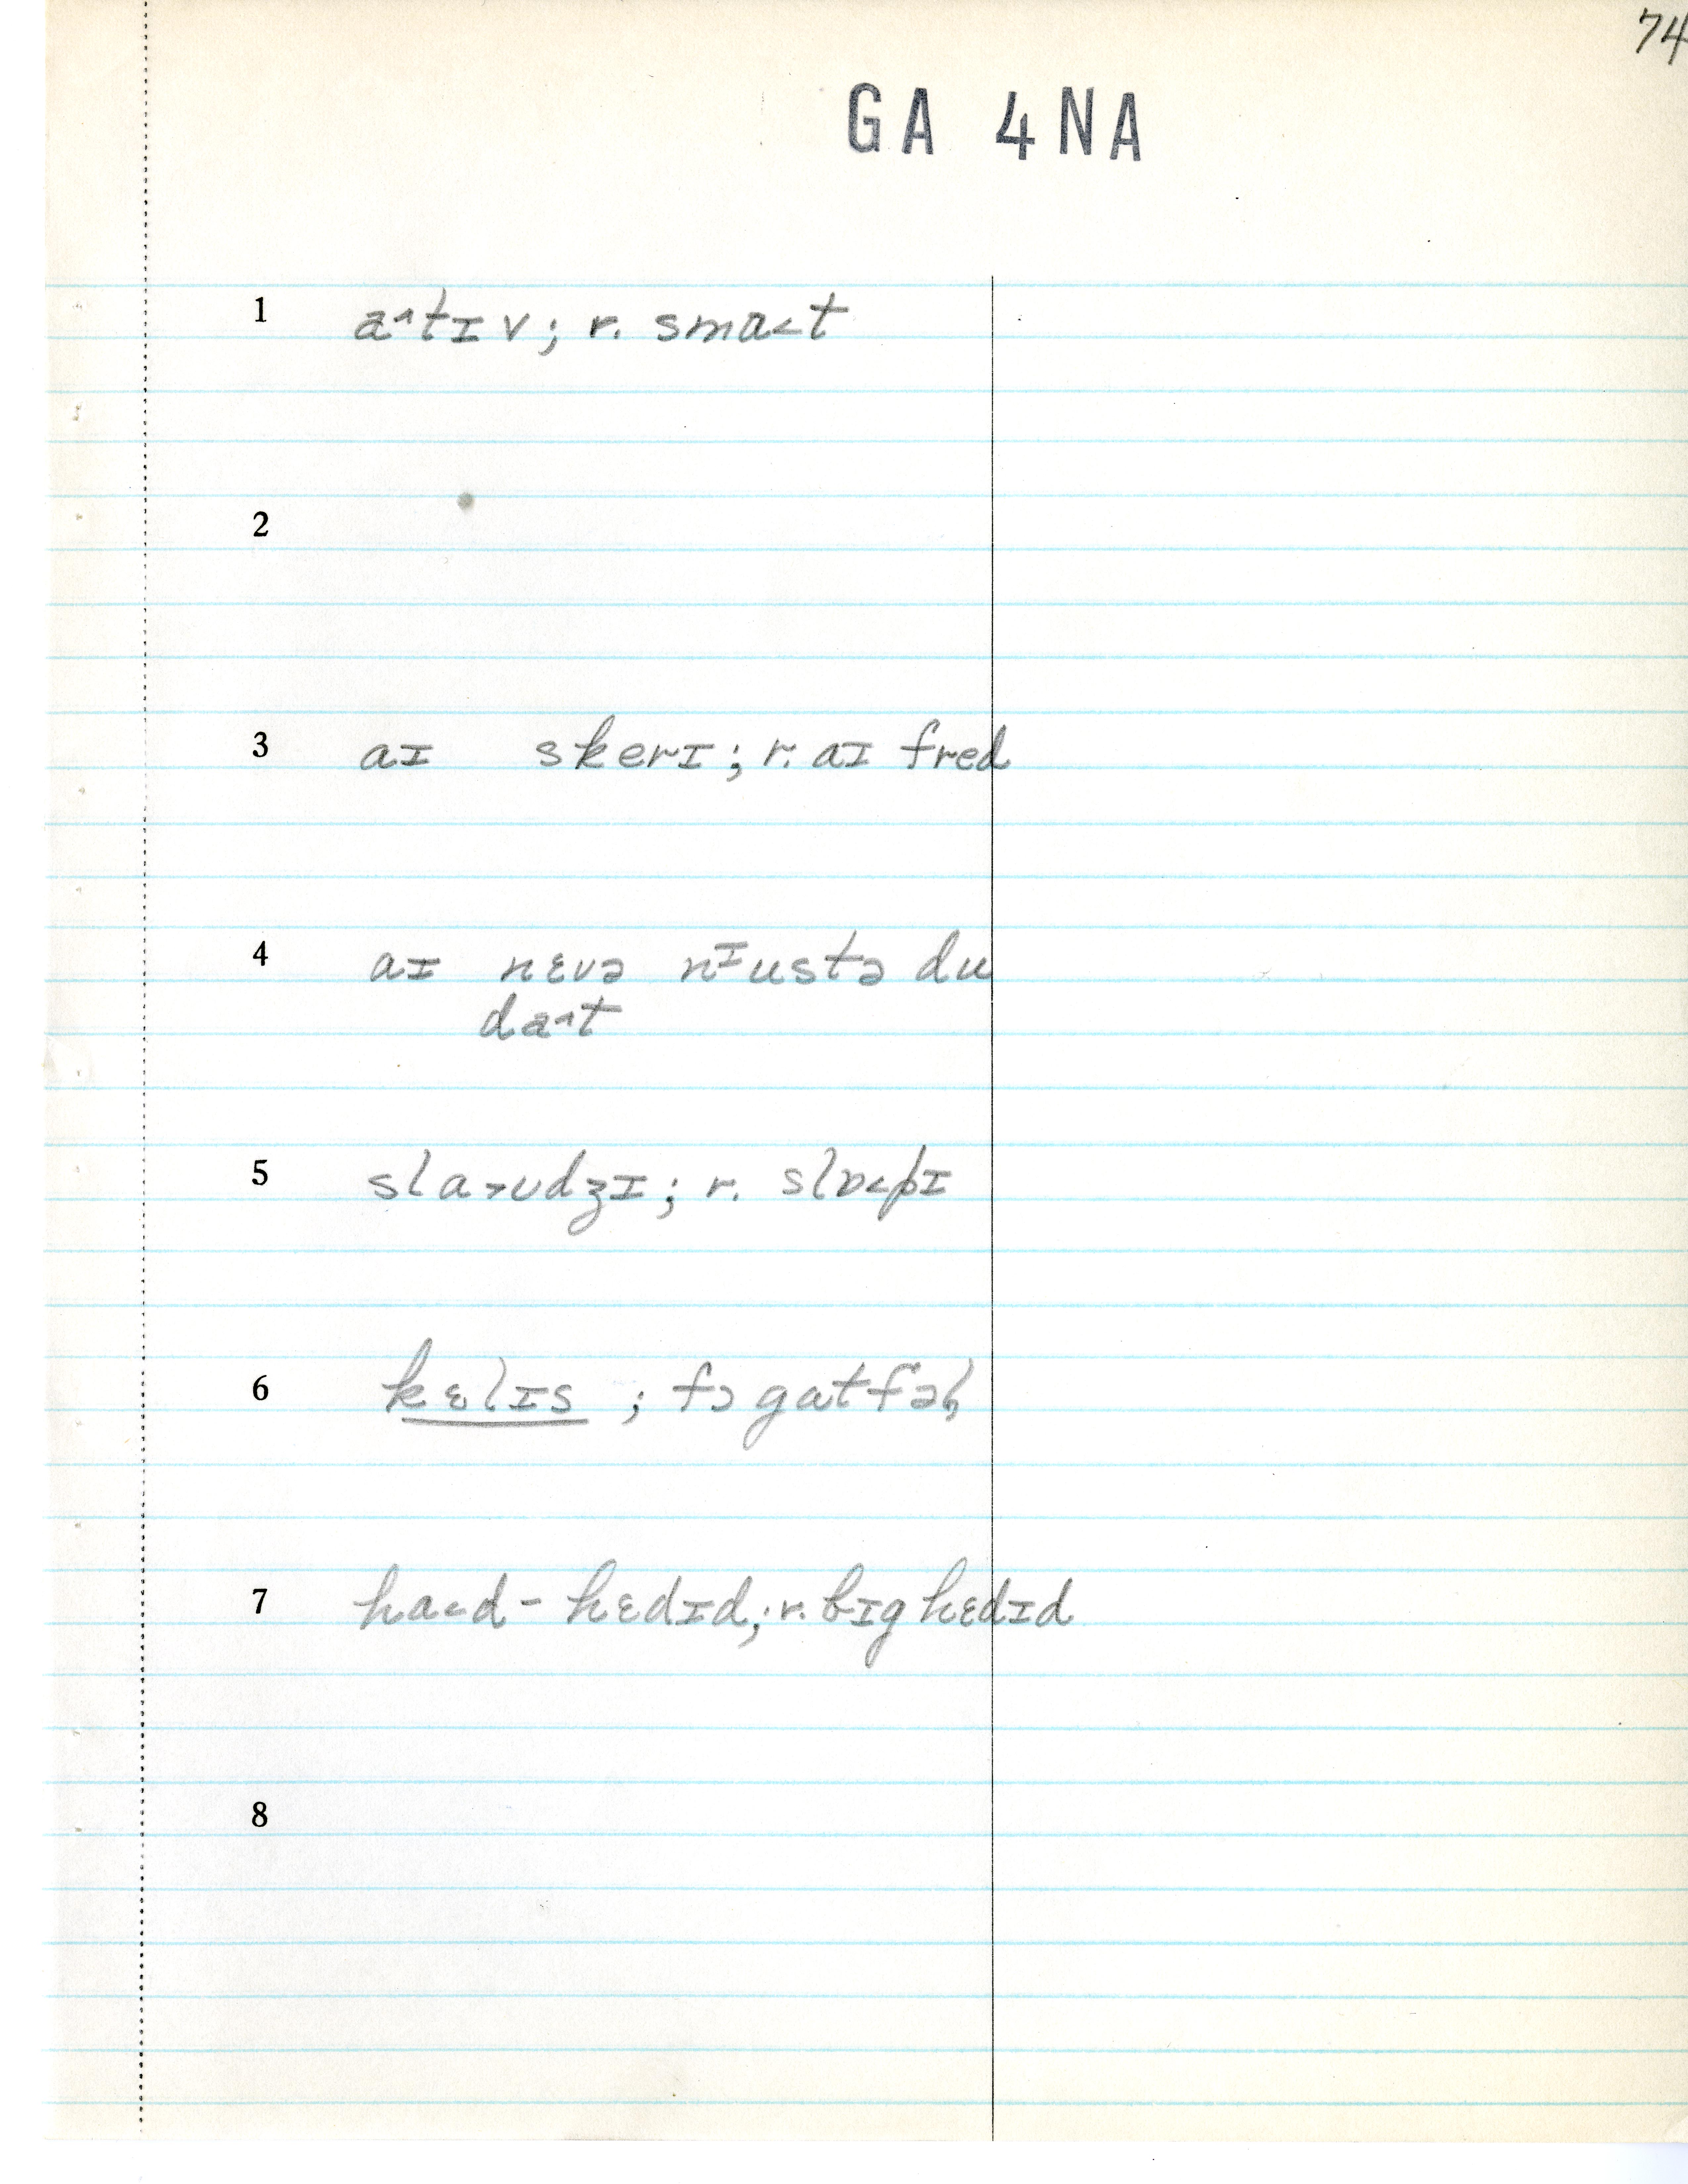 74
GA 4NA
1 a˄tɪv; r. sma˂t
2
3 aɪ skerɪ; r. aɪ fred
4 aɪ nɛvə nᶦustə du
da˄t
5 sla˃ʊdʒɪ; r. slɒ˂pɪ
6 kɛlɪs ; fɔgatfəl̩
7 ha˂d-hɛdɪd; r. bɪg hɛdɪd
8